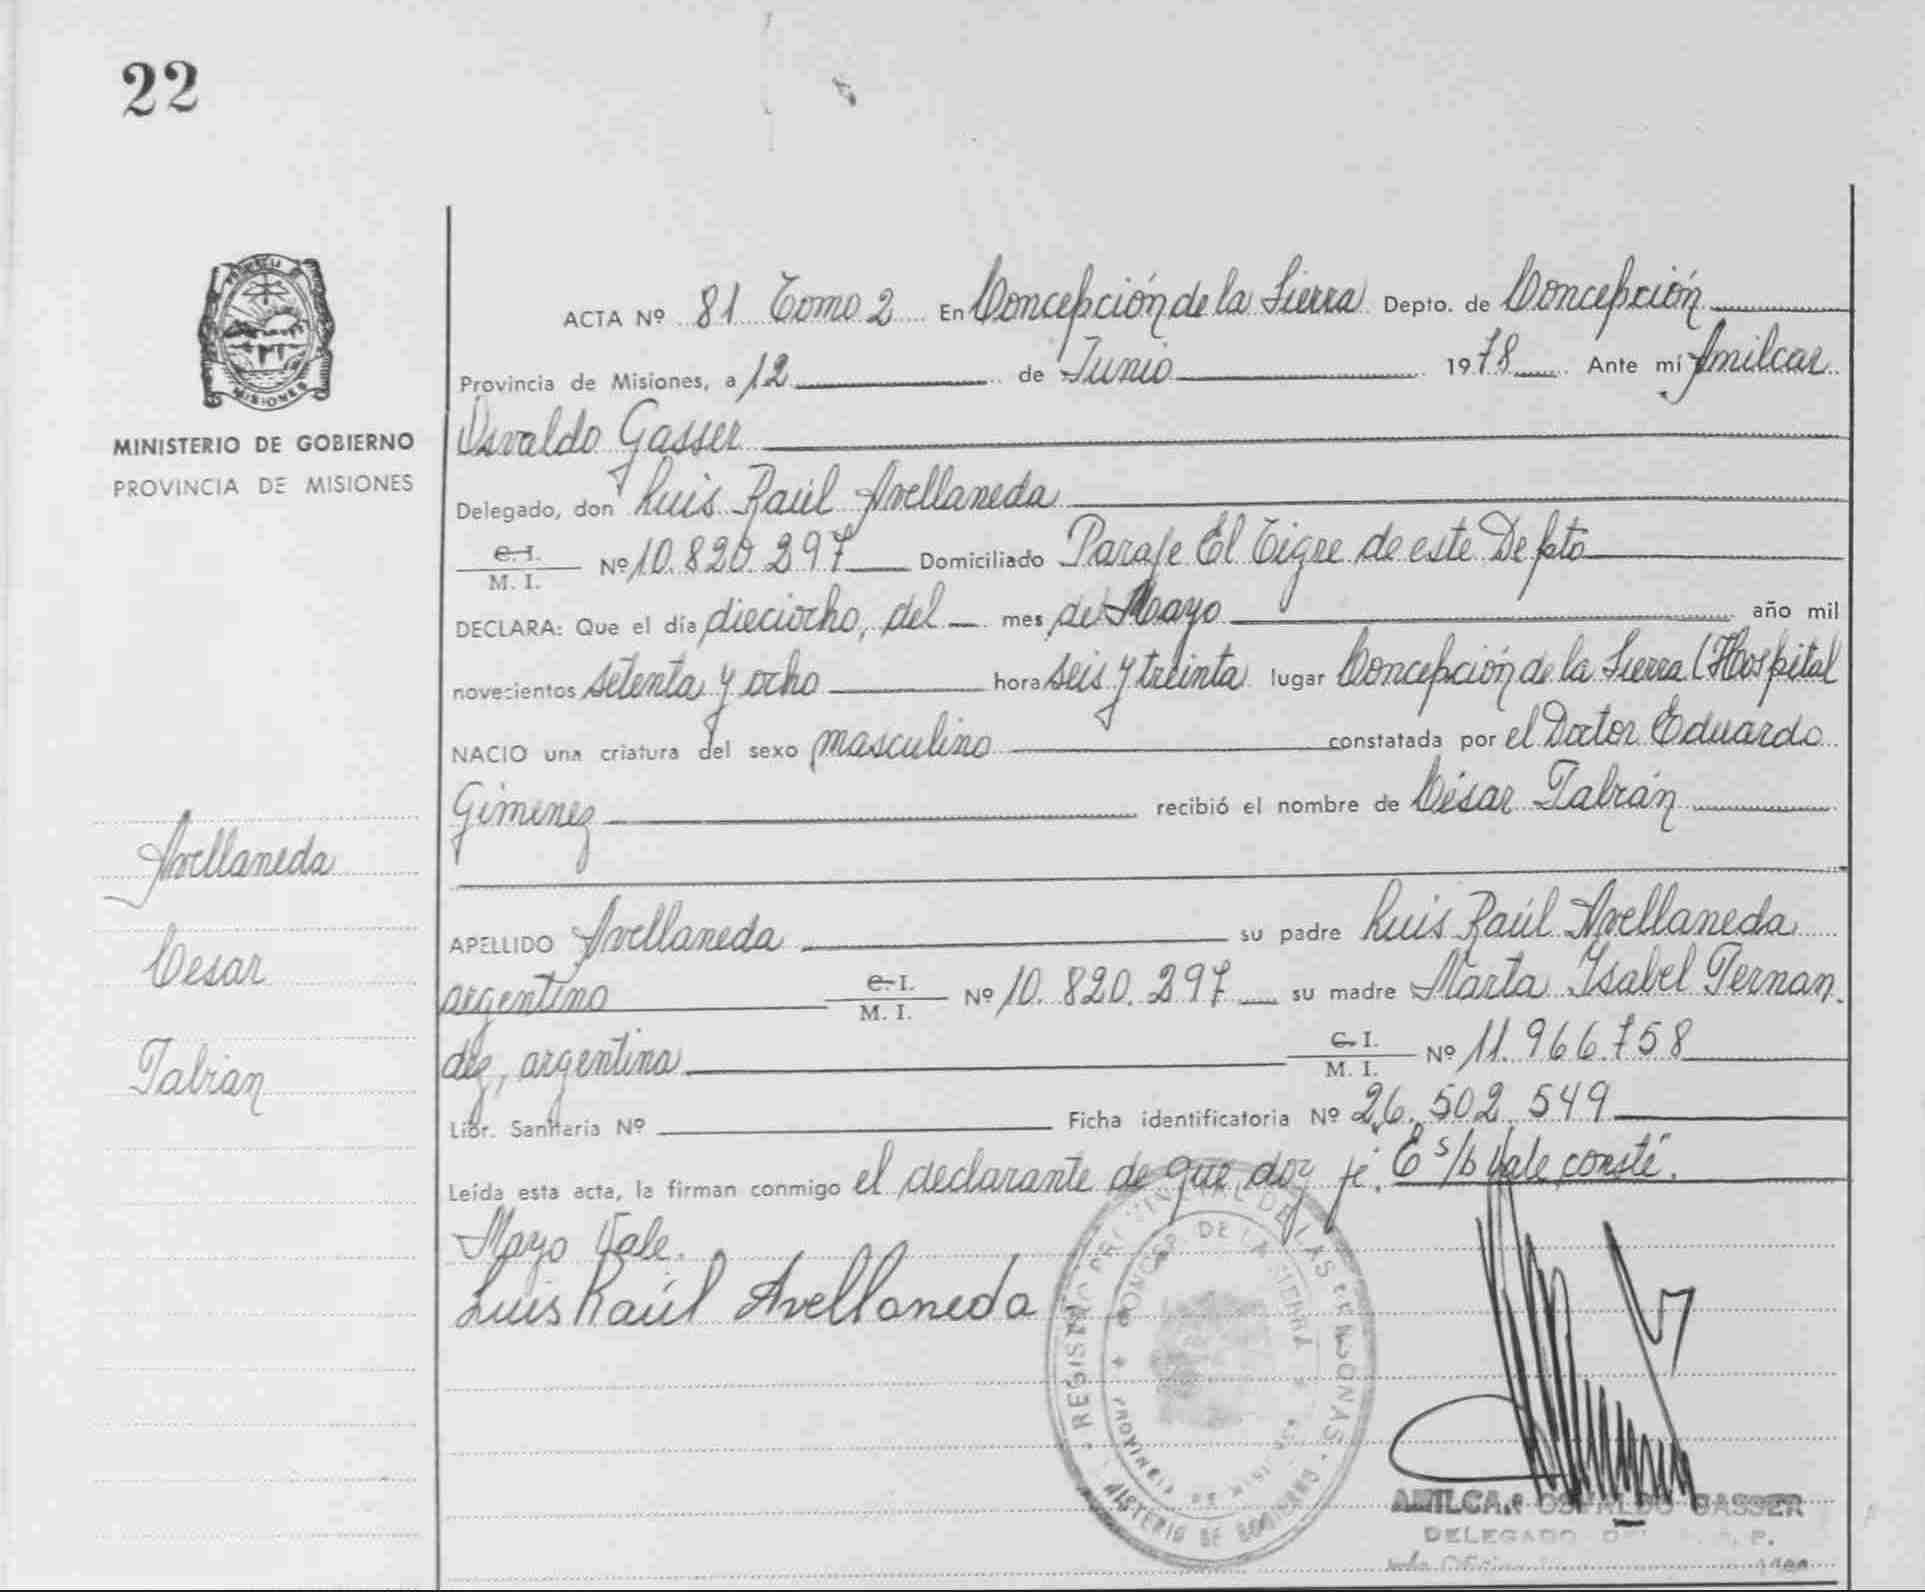 22
PROVINCIA DE
MISIONES
MINISTERIO DE GOBIERNO
PROVINCIA DE MISIONES
Avellaneda
Cesar
Fabian
ACTA Nº 81 Tomo 2 En Concepción de la Sierra Depto. de Concepción
Provincia de Misiones, a 12 de Junio 1978 Ante mí Amilcar
Osvaldo Gasser
Delegado, don Luis Raúl Avellaneda
C. I.
M. I. Nº 10.820.297 Domiciliado Paraje El Tigre de este Depto
DECLARA: Que el día dieciocho, del mes de Mayo año mil
novecientos setenta y ocho hora seis y treinta lugar Concepción de la Sierra (Hospital
NACIO una criatura del sexo masculino constatada por el Doctor Eduardo
Gimenez recibió el nombre de César Fabián
APELLIDO Avellaneda su padre Luis Raúl Avellaneda
argentino C. I. M. I. Nº 10.820.297 su madre Marta Isabel Fernan
dez, argentina C. I. M. I. Nº 11.966.758
Libr. Sanitaria Nº Ficha identificatoria Nº 26.502.549
Leída esta acta, la firman conmigo el declarante de que doy fé. E s/b Vale conste.
Mayo Vale.
Luis Raúl Avellaneda
REGISTRO PROVINCIAL DE LAS PERSONAS
CONCEP. DE LA SIERRA
PROVINCIA DE MISIONES
MINISTERIO DE GOBIERNO
AMILCAR OSVALDO GASSER
DELEGADO P.